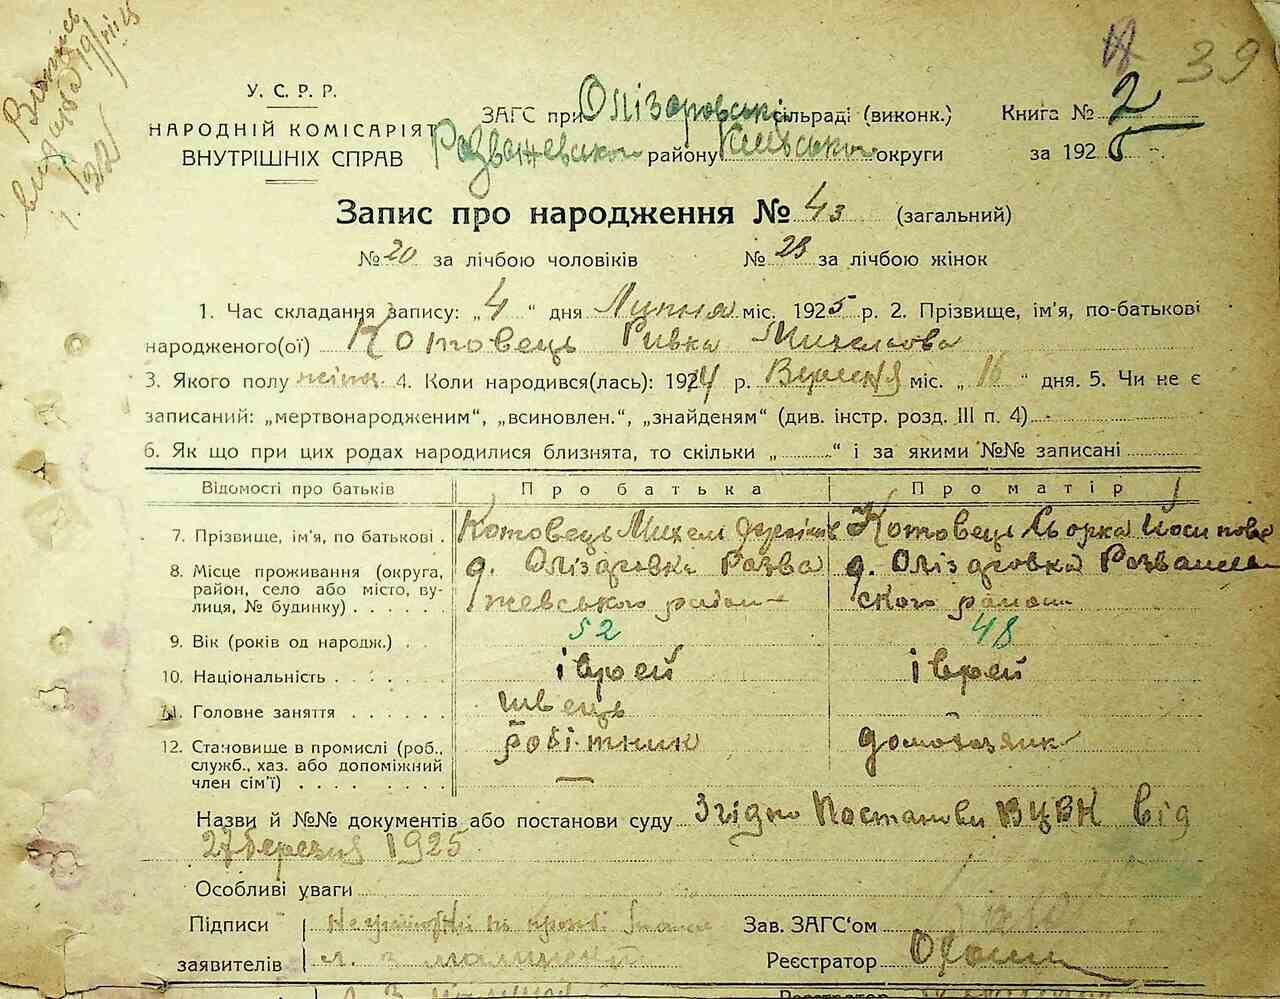 39
У. С. Р. Р.
НАРОДНІЙ КОМІСАРІЯТ
ВНУТРІШНІХ СПРАВ
ЗАГС при Олізаровській сільраді (виконк.)
Розважевського району Київського округи
Книга № 2
за 1925
Запис про народження № 43 (загальний)
№ 20 за лічбою чоловіків № 23 за лічбою жінок
1. Час складання запису: „4“ дня Липня міс. 1925 р. 2. Прізвище, ім'я, по-батькові
народженого(ої) Котовець Ривка Михелова
3. Якого полу жіноч. 4. Коли народився(лась): 1924 р. Вересня міс. „16“ дня. 5. Чи не є
записаний: „мертвонародженим“, „всиновлен.“, „знайденям“ (див. інстр. розд. III п. 4)
6. Як що при цих родах народилися близнята, то скільки „ “ і за якими №№ записані
Відомості про батьків Про батька Про матір
7. Прізвище, ім'я, по батькові . Котовець Михел Котовець Сьорка Иосипова
8. Місце проживання (округа, д. Олізаровка Розва д. Олізаровка
район, село або місто, ву- жевського район ского район
лиця, № будинку) . . . .
9. Вік (років од народж.) . . 52 48
10. Національність . . . . . івреи івреи
11. Головне заняття . . . . . . швець
12. Становище в промислі (роб., робітник домохазяйк
служб., хаз. або допоміжний
член сім'ї) . . . . . . . . —
Назви й №№ документів або постанови суду Згідно Постанови ВЦВК від
27 березня 1925
Особливі уваги
Підписи Зав. ЗАГС'ом
заявителів Реєстратор